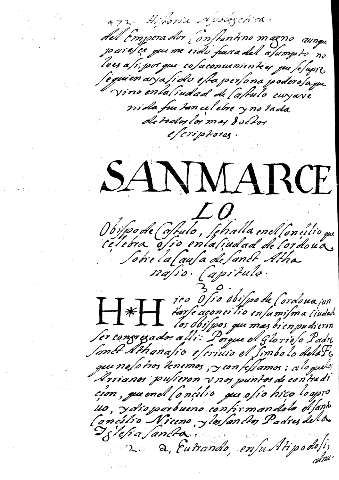 272 Historia Apologetica
del Emperador Constantino magno aunque
parezes que me e ido fuera del asumpto no
lo es asi, porque cosa conueniente es que se sepa
quien aya sido esta persona poderosa que
vino en la ciudad de Castulo cuya ve
nida fue tan celebre y notada
de todos los mas doctos
escriptores.
SAN MARCE
LO
Obispo de Castulo, se halla en el Concilio que
celebra Osio en la Ciudad de Cordoua
sobre la Causa de Sanct Atha
nasio. Capitulo.
30.
H*Hizo Osio obispo de Cordoua, jun
tarse a concilio en su misma ciudad
los obispos que mas bien pudieron
ser congregados alli: Porque el Glorioso Padre
Sanct Athanasio escriuio el simbolo de la Fe
que nosotros tenemos, y confessamos: a lo qual los
Arrianos pusieron vnos puntos de contradi
cion, que en el Concilio que osio hizo lo apro
uo, y dio por bueno confirmandolo el sancto
Concilio Niceno, y los sanctos Padres de la
Yglesia sancta.
2. Entrando, en su Atipodosi,